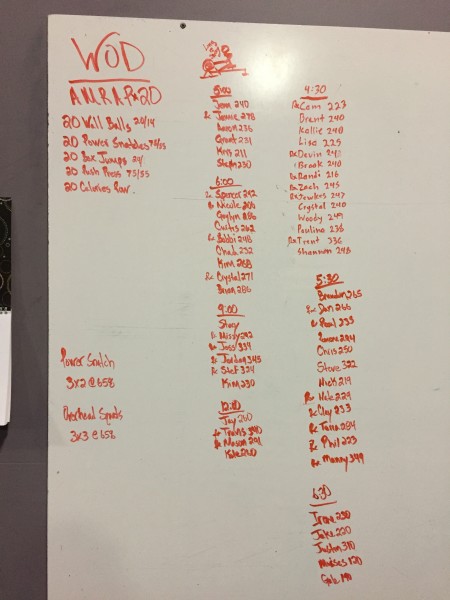 WOD
AMRAP 20
20 Wall Balls 20/14
20 Power Snatches 75/55
20 Box Jumps 24/
20 Push Press 75/55
20 Calories Row.
Power Snatch
3x2 @ 65%
Overhead Squats
3x3 @ 65%
5:00
Jenn 240
Rx Jamie 278
Aaron 235
Grant 231
Kris 211
Steph 230
6:00
Rx Spencer 242
Rx Nicole 205
286
Curtis 262
Rx Bobbi 248
Chad 232
Kim 268
Rx Crystal 271
Brian 286
9:00
Stacy
Rx Missy 292
Rx Joss 334
Rx Jordan 345
Rx Stef 324
Kim 230
12:10
Jay 260
Rx Travis 340
Rx Mason 291
Kate 240
4:30
Rx Cam 223
Brent 240
Kallie 240
Lisa 225
Rx Devin 241
Brook 240
Rx Randi 216
Rx Zach 245
Rx 247
Crystal 240
Woody 249
Paulina 238
Rx Trent 336
Shannon 248
5:30
Brandon 265
Rx Dan 266
Rx Paul 233
294
Chris 250
Steve 322
Nick 219
Rx 229
Rx Clay 233
Rx Tara 284
Rx Phil 223
Rx Manny 349
6:30
Irene 230
Jake 220
Justin 310
Moises 120
Gabe 190